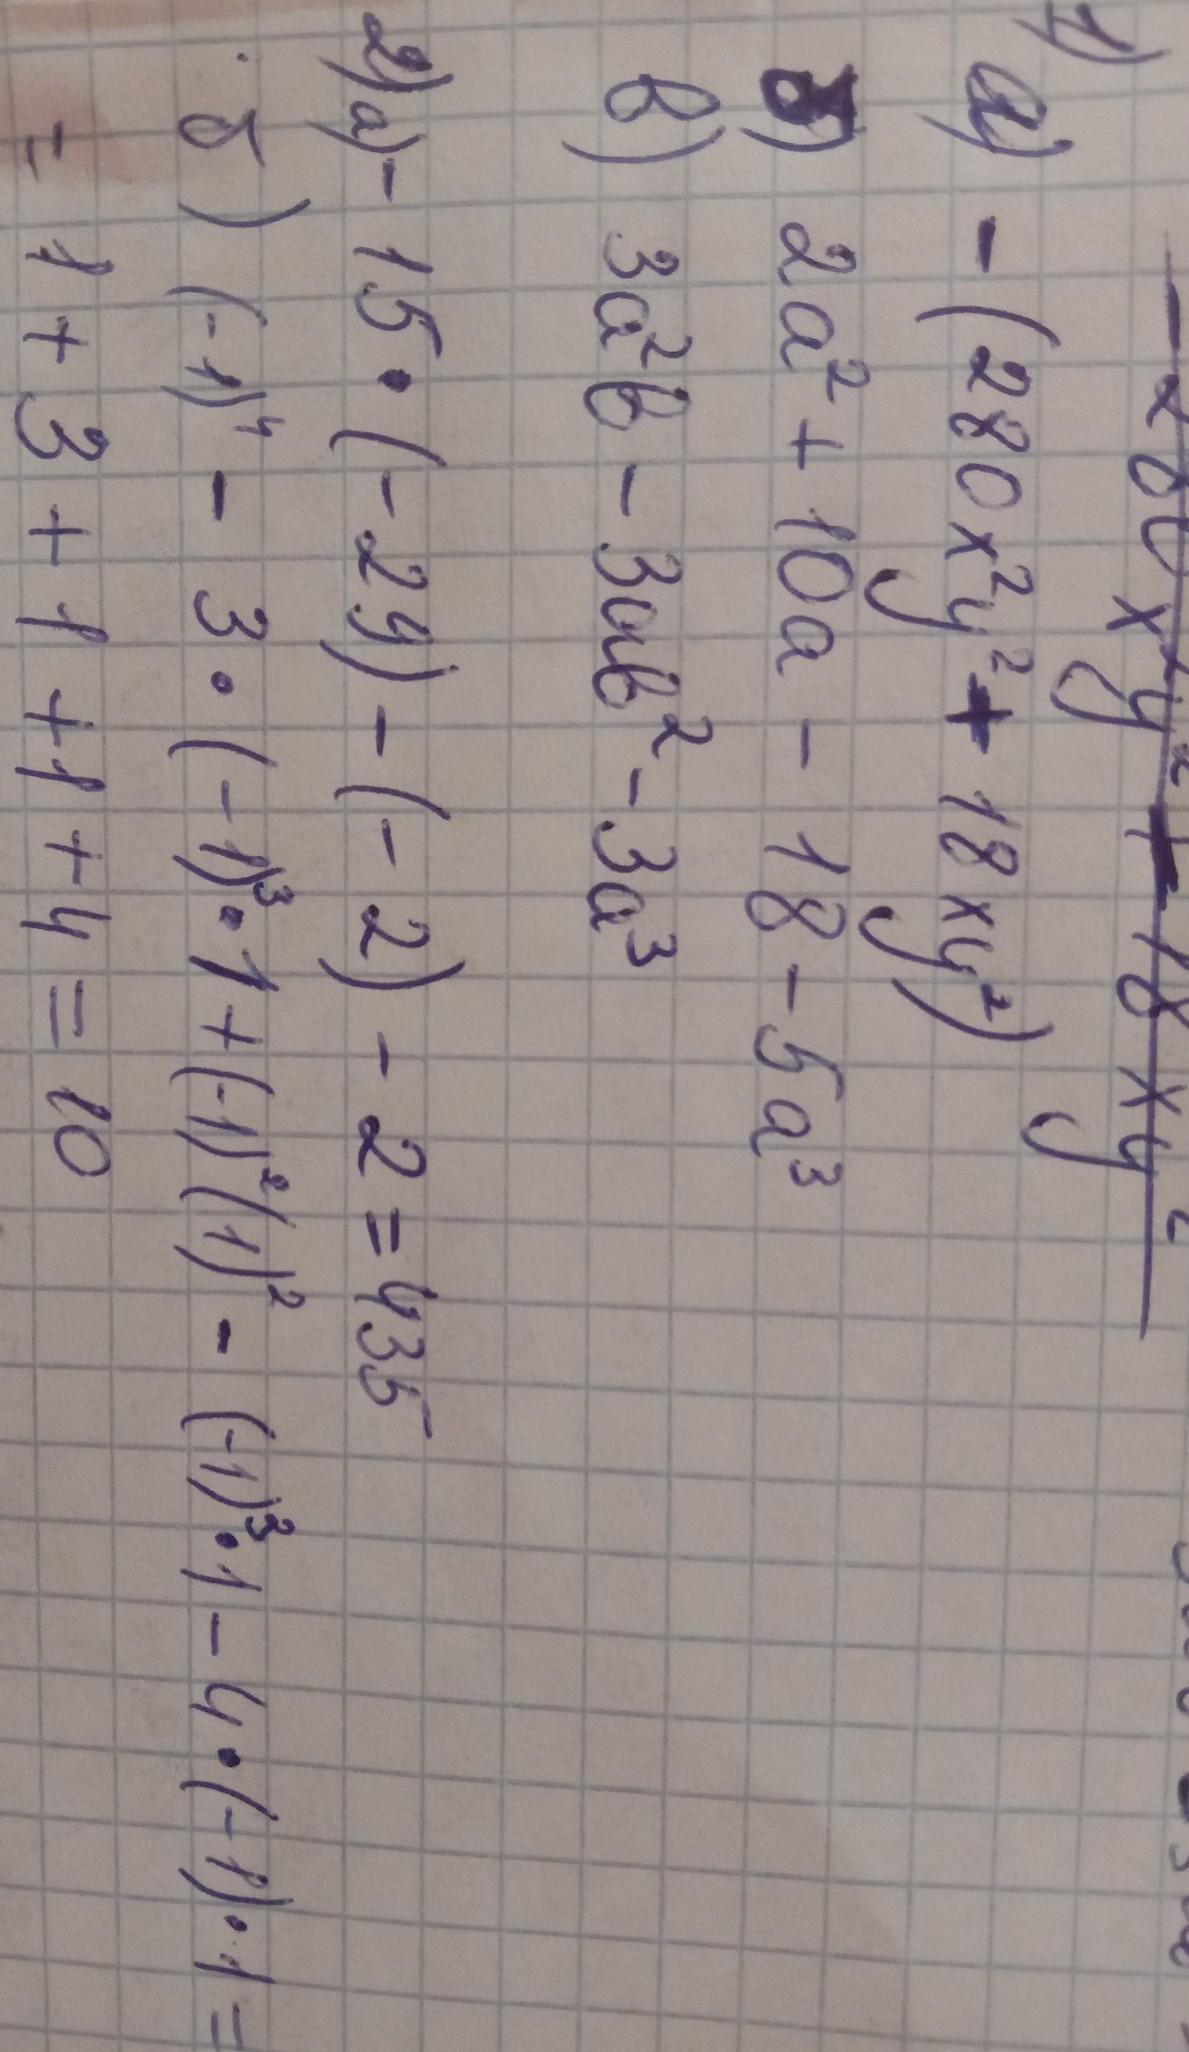 - 280x²y² + 18xy²
1) а) - (280x²y² + 18xy²)
б) 2a² + 10a - 18 - 5a³
в) 3a²b - 3ab² - 3a³
2) а) - 15 · (-29) - (-2) - 2 = 435
б) (-1)⁴ - 3 · (-1)³ · 1 + (-1)² (1)² - (-1)³ · 1 - 4 · (-1) · 1 =
= 1 + 3 + 1 + 1 + 4 = 10